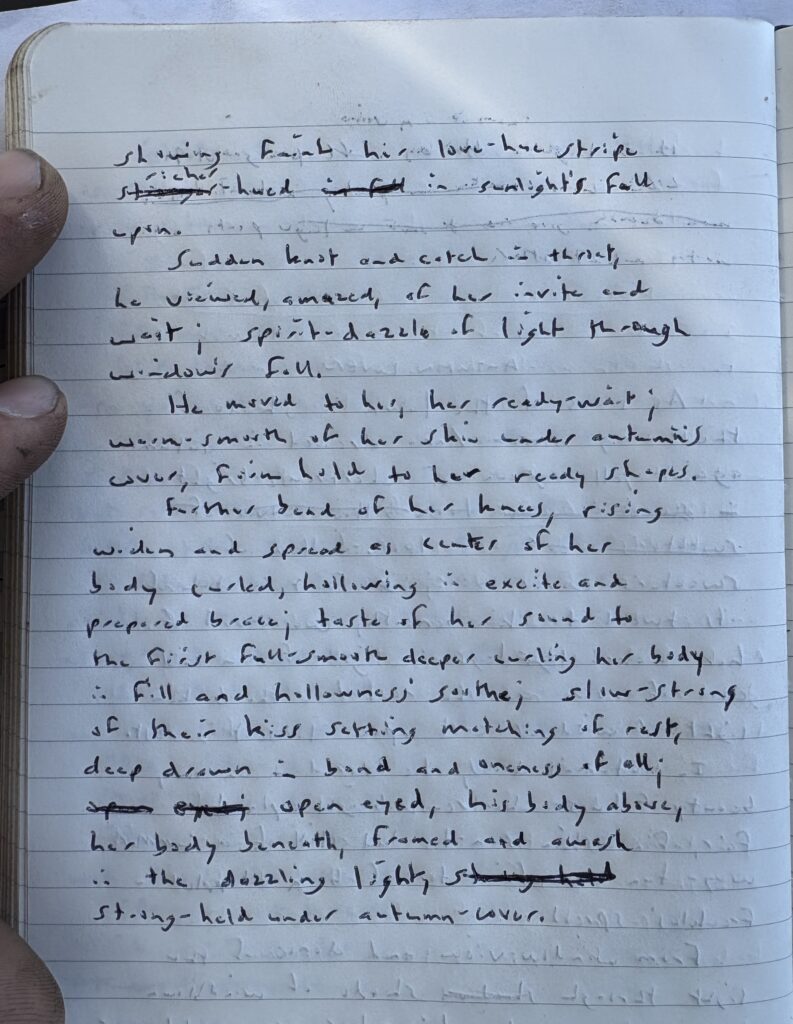 showing faint her love-hue stripe
richer
-hued in sunlight's fall
upon.
Sudden knot and catch in throat,
he viewed, amazed, of her invite and
wait; spirit-dazzle of light through
window's fall.
He moved to her, her ready-wait;
warm-smooth of her skin under autumn's
cover, firm hold to her ready shapes.
Further bend of her knees, rising
widen and spread as center of her
body curled, hollowing in excite and
prepared brace; taste of her sound to
the first full-smooth deeper curling her body
in fill and hollowness' soothe; slow-strong
of their kiss setting matching of rest,
deep drawn in bond and oneness of all;
open eyed; open eyed, his body above,
her body beneath, framed and awash
in the dazzling light,
strong-held under autumn-cover.